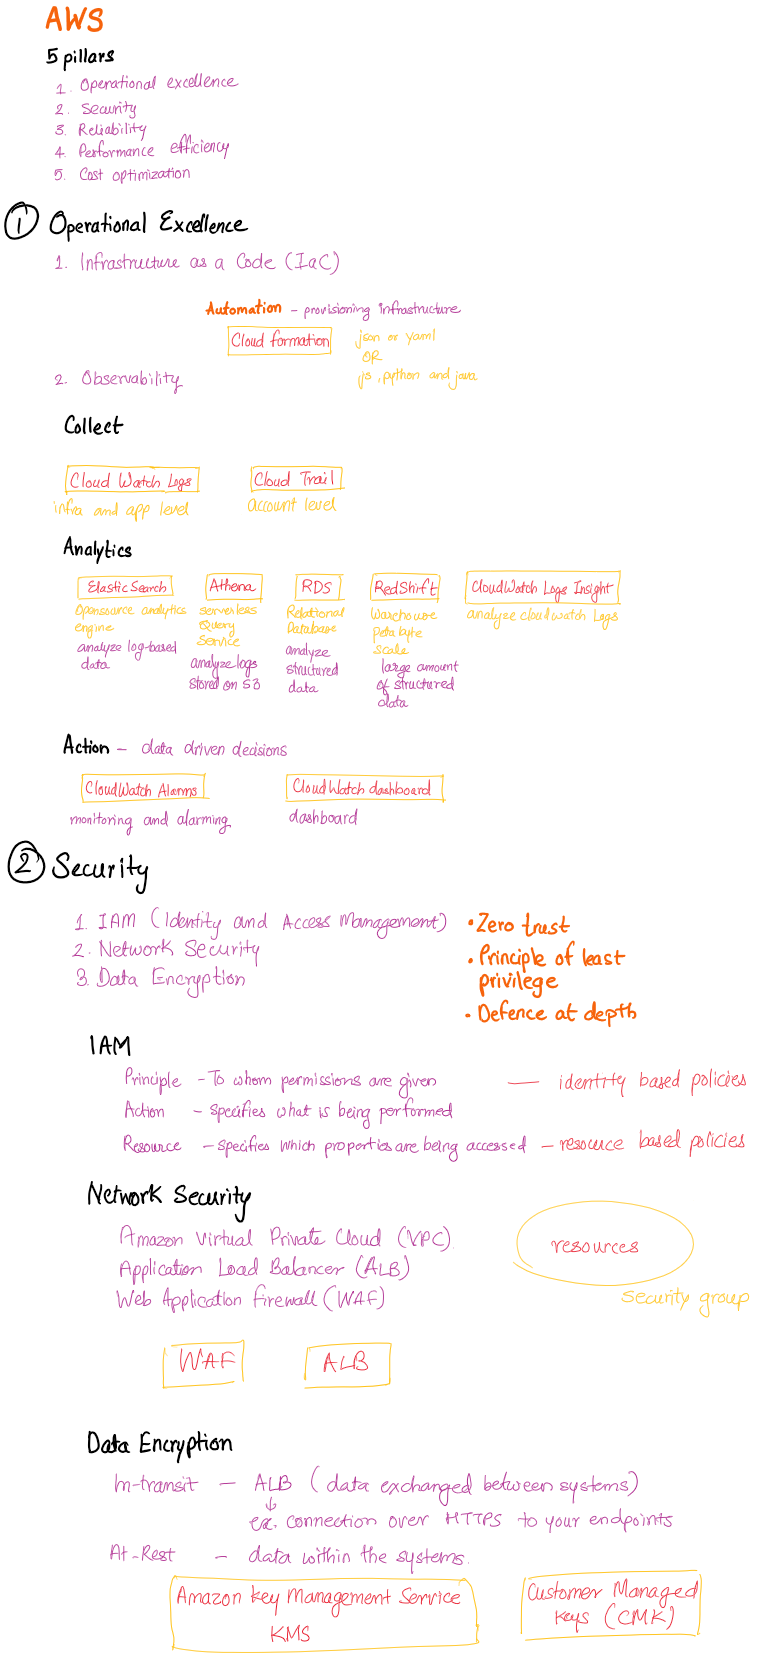 AWS
5 pillars
1. Operational excellence
2. Security
3. Reliability
4. Performance efficiency
5. Cost optimization
1 Operational Excellence
1. Infrastructure as a Code (IaC)
Automation - provisioning infrastructure
Cloud formation
json or yaml
OR
js, python and java
2. Observability
Collect
Cloud Watch Logs
infra and app level
Cloud Trail
account level
Analytics
ElasticSearch
Opensource analytics
engine
analyze log-based
data
Athena
serverless
Query
Service
analyze logs
stored on S3
RDS
Relational
Database
analyze
structured
data
RedShift
Warehouse
peta byte
scale
large amount
of structured
data
CloudWatch Logs Insight
analyze cloudwatch Logs
Action - data driven decisions
CloudWatch Alarms
monitoring and alarming
CloudWatch dashboard
dashboard
2 Security
1. IAM (Identity and Access Management)
2. Network Security
3. Data Encryption
• Zero trust
• Principle of least
privilege
• Defence at depth
IAM
Principle - To whom permissions are given — identity based policies
Action - specifies what is being performed
Resource - specifies which properties are being accessed - resource based policies
Network Security
Amazon Virtual Private Cloud (VPC)
Application Load Balancer (ALB)
Web Application Firewall (WAF)
resources
security group
WAF
ALB
Data Encryption
In-transit - ALB (data exchanged between systems)
↓
ex. connection over HTTPS to your endpoints
At-Rest - data within the systems.
Amazon Key Management Service
KMS
Customer Managed
Keys (CMK)